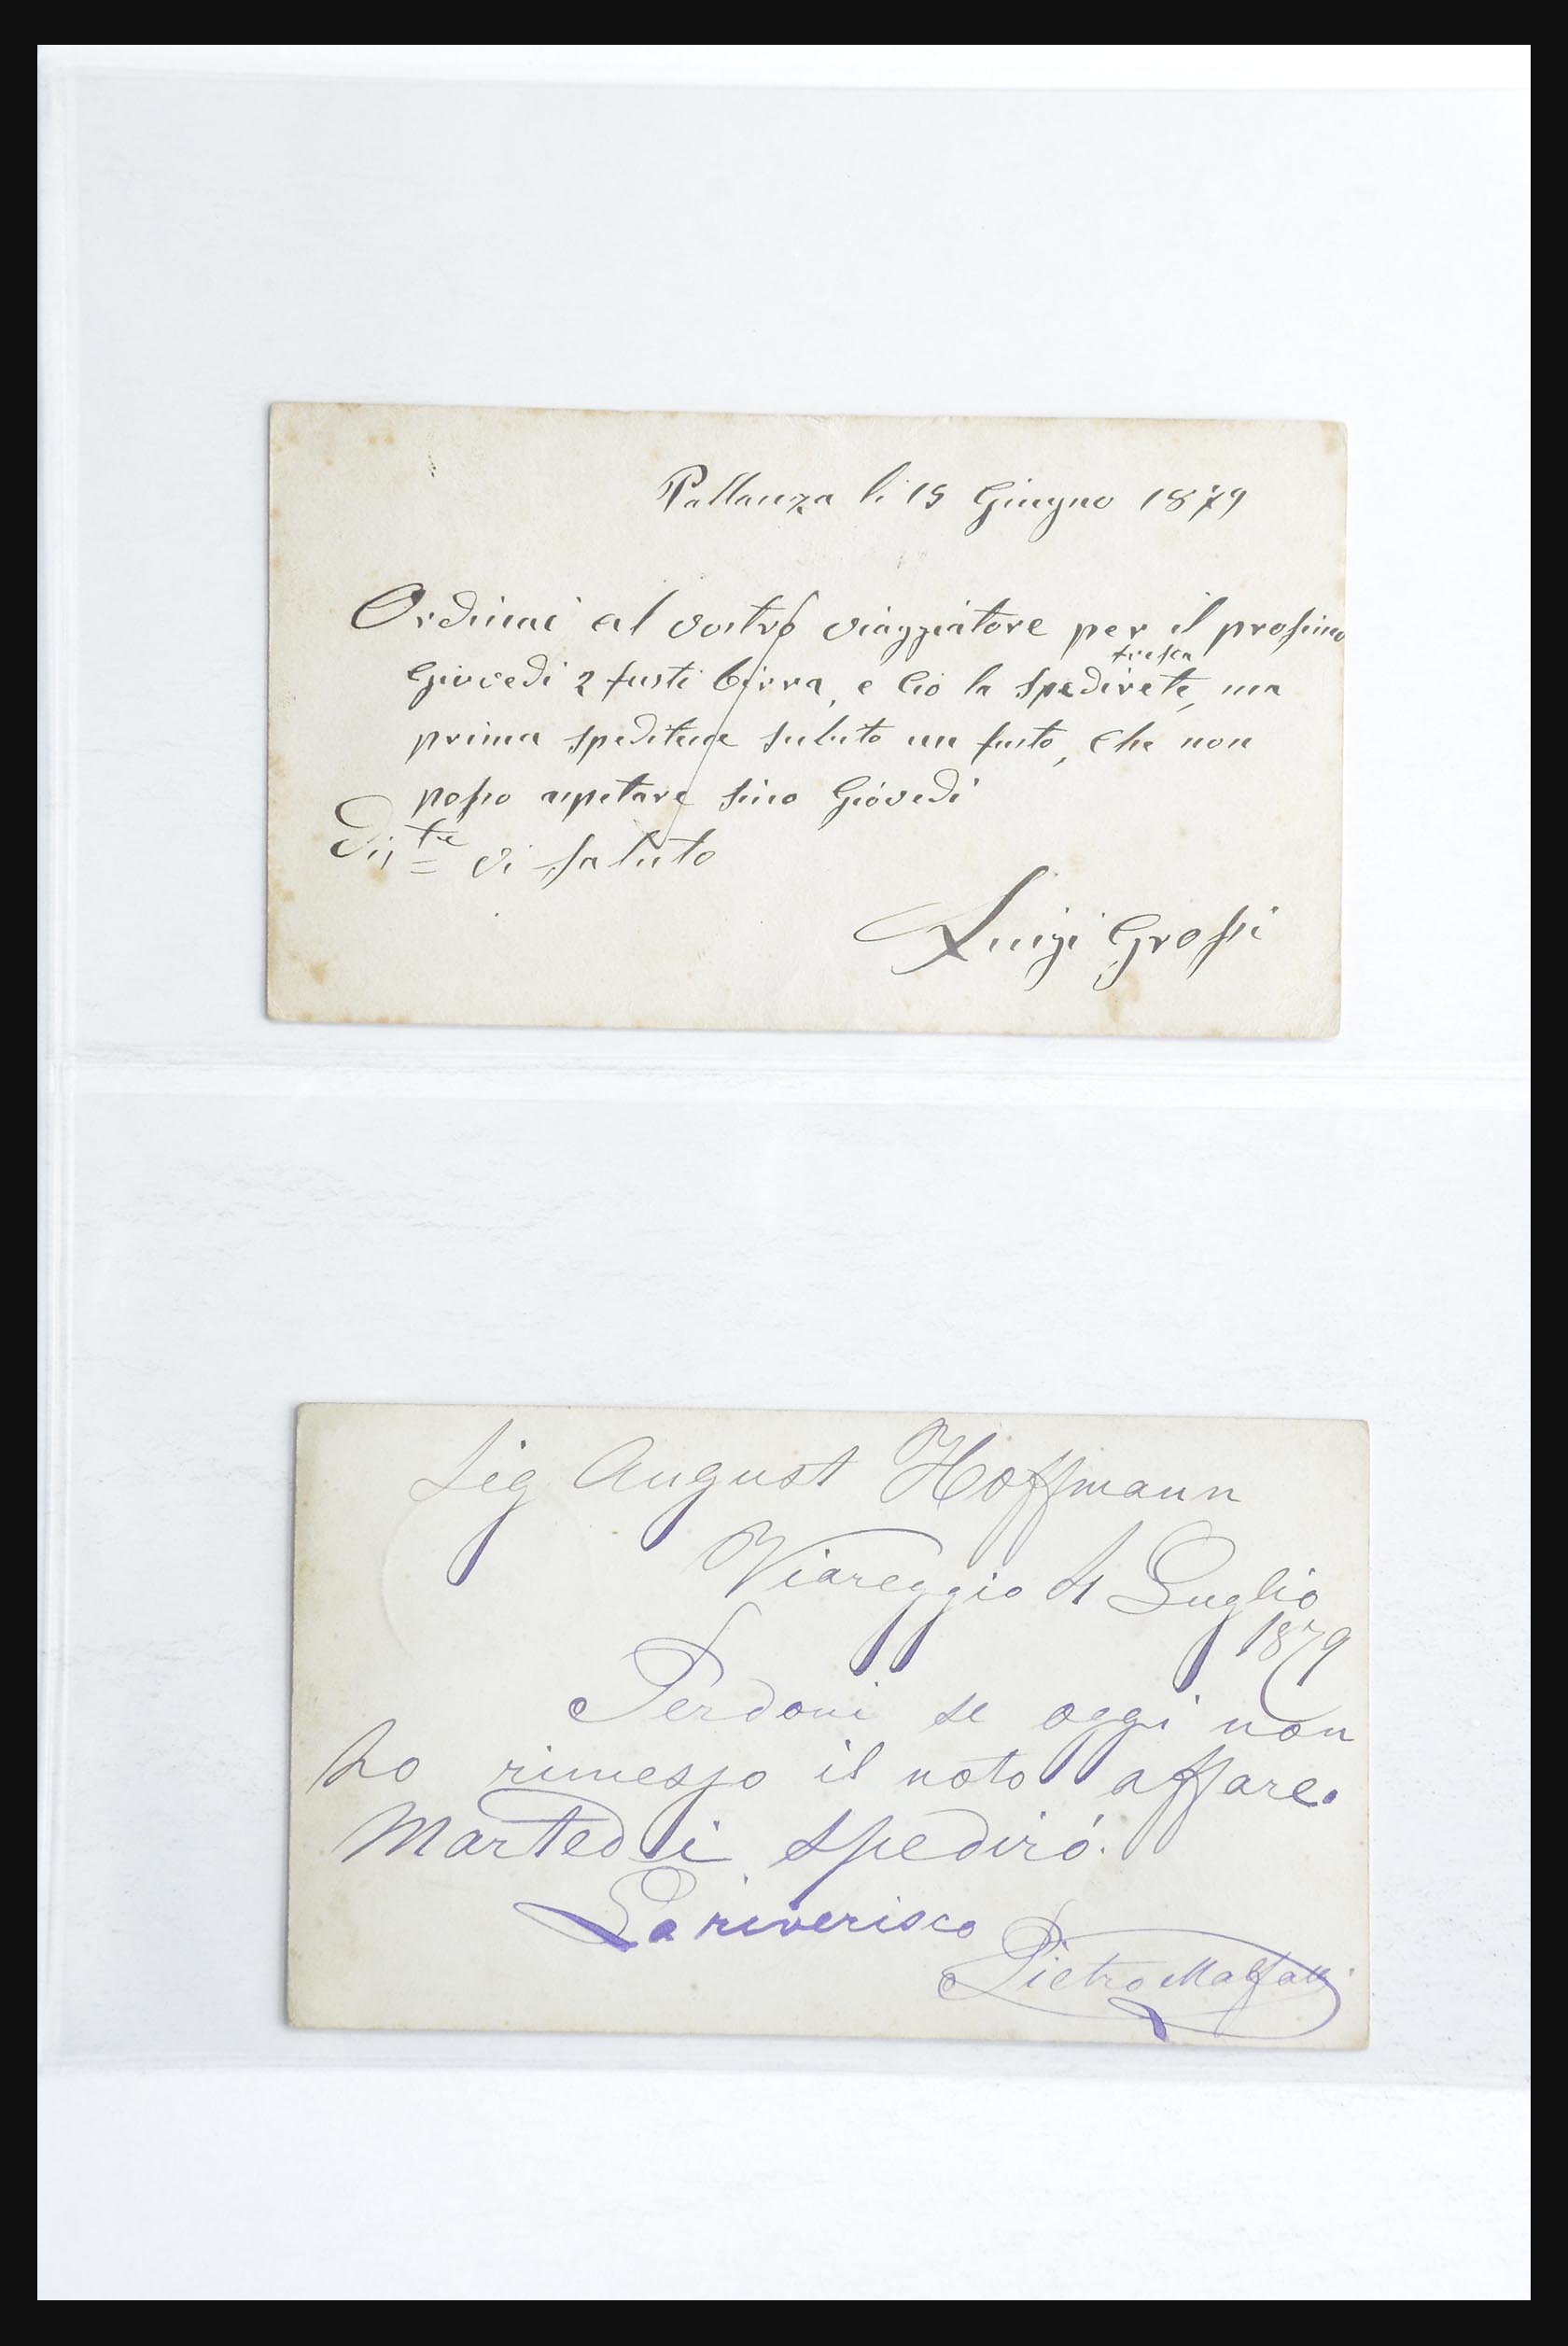 Pallanza li 15 Giugno 1879
Ordinai al vostro viaggiatore per il prossimo
Giovedi 2 fusti birra, e ciò la spedirete fresca, ma
prima speditene subito un fusto, che non
posso aspetare sino Giovedi
Dis.te vi saluto
Luigi Grossi
Sig August Hoffmann
Viareggio 4 Luglio
1879
Perdoni se oggi non
ho rimesso il noto affare.
Martedi spedirò.
La riverisco
Pietro Malfatti